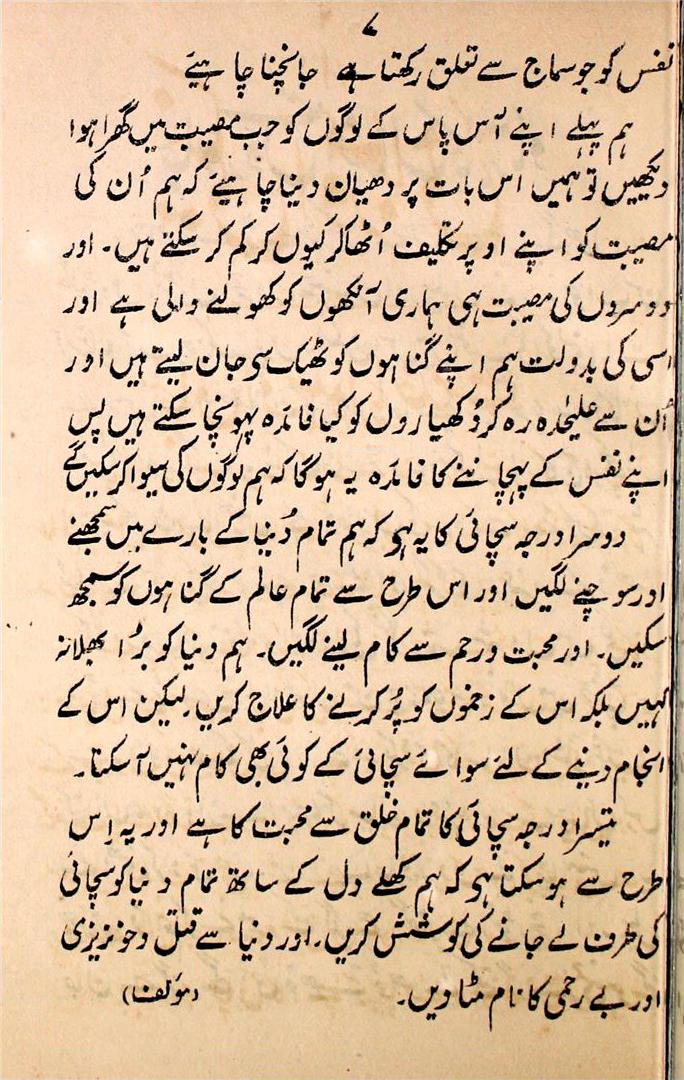 ۷
نفس کو جو سماج سے تعلق رکھتا ہے جانچنا چاہیئے
ہم پہلے اپنے آس پاس کے لوگوں کو جب مصیبت میں گھرا ہوا
دیکھیں تو ہمیں اس بات پر دھیان دینا چاہیئے کہ ہم اُن کی
مصیبت کو اپنے اوپر تکلیف اُٹھا کر کیوں کر کم کر سکتے ہیں۔ اور
دوسروں کی مصیبت ہی ہماری آنکھوں کو کھولنے والی ہے اور
اسی کی بدولت ہم اپنے گناہوں کو ٹھیک سی جان لیتے ہیں اور
اُن سے علیحٰدہ رہ کر دُکھیاروں کو کیا فائدہ پہونچا سکتے ہیں پس
اپنے نفس کے پہچاننے کا فائدہ یہ ہوگا کہ ہم لوگوں کی سیوا کر سکیں گے
دوسرا درجہ سچائی کا یہ ہو کہ ہم تمام دُنیا کے بارے میں سمجھنے
اور سوچنے لگیں اور اس طرح سے تمام عالم کے گناہوں کو سمجھ
سکیں۔ اور محبت و رحم سے کام لینے لگیں۔ ہم دنیا کو بُرا بھلا نہ
کہیں بلکہ اس کے زخموں کو پُر کرنے کا علاج کریں۔ لیکن اس کے
انجام دینے کے لئے سوائے سچائی کے کوئی بھی کام نہیں آ سکتا۔
تیسرا درجہ سچائی کا تمام خلق سے محبت کا ہے اور یہ اِس
طرح سے ہو سکتا ہو کہ ہم کھلے دل کے ساتھ تمام دنیا کو سچائی
کی طرف لے جانے کی کوشش کریں۔ اور دنیا سے قتل و خونریزی
اور بے رحمی کا نام مٹا دیں۔ (مؤلفنا)